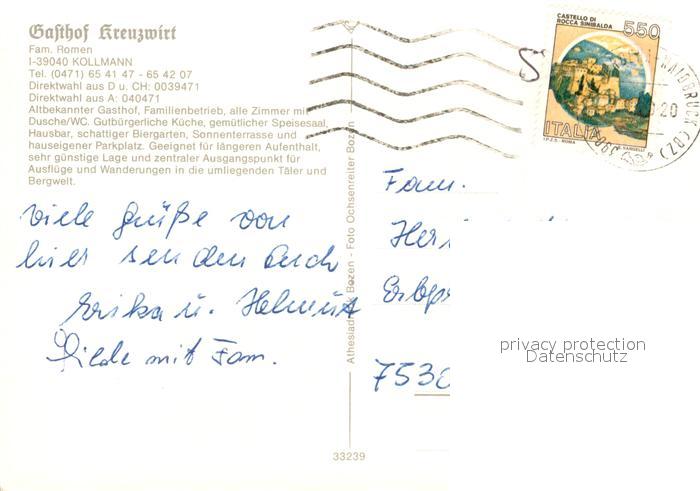 Gasthof Kreuzwirt
Fam. Romen
I-39040 KOLLMANN
Tel. (0471) 65 41 47 - 65 42 07
Direktwahl aus D u. CH: 0039471
Direktwahl aus A: 040471
Altbekannter Gasthof, Familienbetrieb, alle Zimmer mit
Dusche/WC. Gutbürgerliche Küche, gemütlicher Speisesaal,
Hausbar, schattiger Biergarten, Sonnenterrasse und
hauseigener Parkplatz. Geeignet für längeren Aufenthalt,
sehr günstige Lage und zentraler Ausgangspunkt für
Ausflüge und Wanderungen in die umliegenden Täler und
Bergwelt.
viele Grüße von
hier senden Euch
Erika u. Helmut
mit Fam.
Athesiadruck Bozen - Foto Ochsenreiter Bozen
33239
CASTELLO DI
ROCCA SINIBALDA
550
ITALIA
I.P.Z.S. - ROMA
20
(BZ)
Fam.
Her
753
privacy protection
Datenschutz